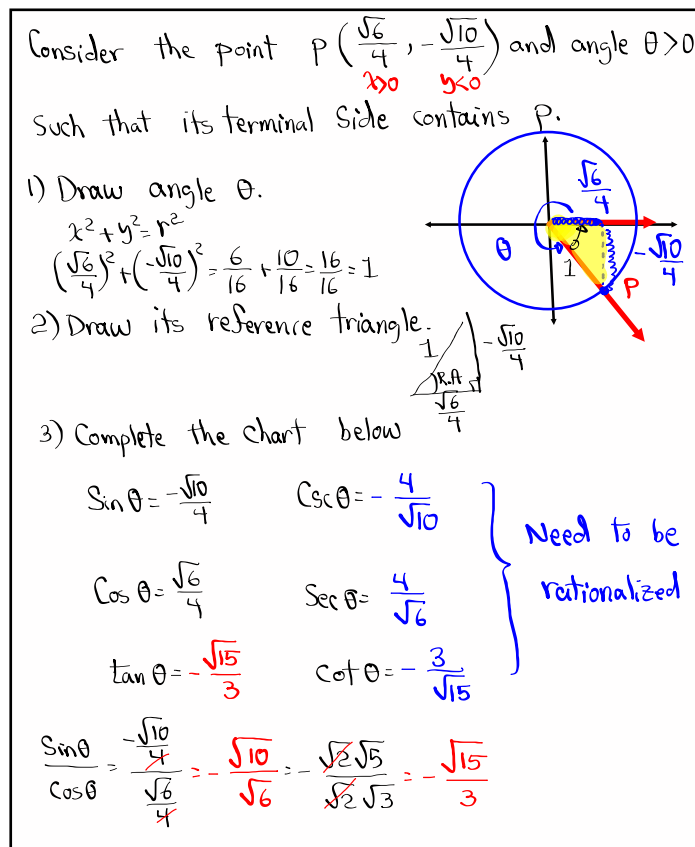 Consider the point P(√6/4, -√10/4) and angle θ>0
x>0 y<0
Such that its terminal Side contains P.
1) Draw angle θ.
x² + y² = r²
(√6/4)² + (-√10/4)² = 6/16 + 10/16 = 16/16 = 1
√6/4
θ
1
-√10/4
P
2) Draw its reference triangle.
1
-√10/4
R.A
√6/4
3) Complete the chart below
Sin θ = -√10/4 Csc θ = -4/√10
Need to be
Cos θ = √6/4 Sec θ = 4/√6
rationalized
tan θ = -√15/3 cot θ = -3/√15
Sinθ/cosθ = (-√10/4)/(√6/4) = -√10/√6 = -√2√5/√2√3 = -√15/3